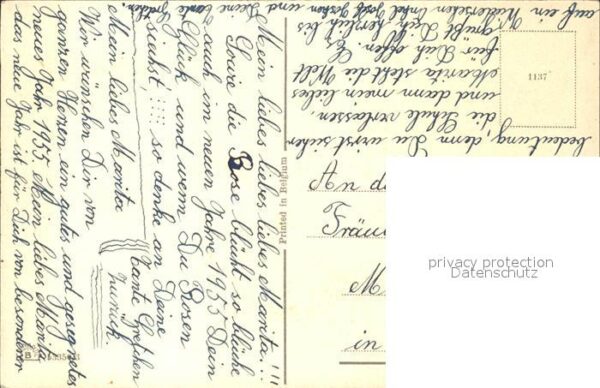 Mein liebes liebes liebes Marita!!!
So wie die Rose blüht so blühe
auch im neuen Jahre 1955 Dein
Glück und wenn Du Rosen
siehst, :::: so denke an Deine
Tante Gretchen
Zürich.
Mein liebes Marita
Wir wünschen Dir von
ganzen Herzen ein gutes und gesegnetes
neues Jahr 1955 Mein liebes Marita
das neue Jahr ist für Dich von besonderer
bedeutung, denn Du wirst sicher
die Schule verlassen
und dann mein liebes
Marita steht die Welt
für Dich offen. Es
grüßt Dich herzlich bis
auf ein Wiedersehen Onkel und Deine Tante Gretchen.
Printed in Belgium
1137
An
Fräu
M
in
B
privacy protection
Datenschutz